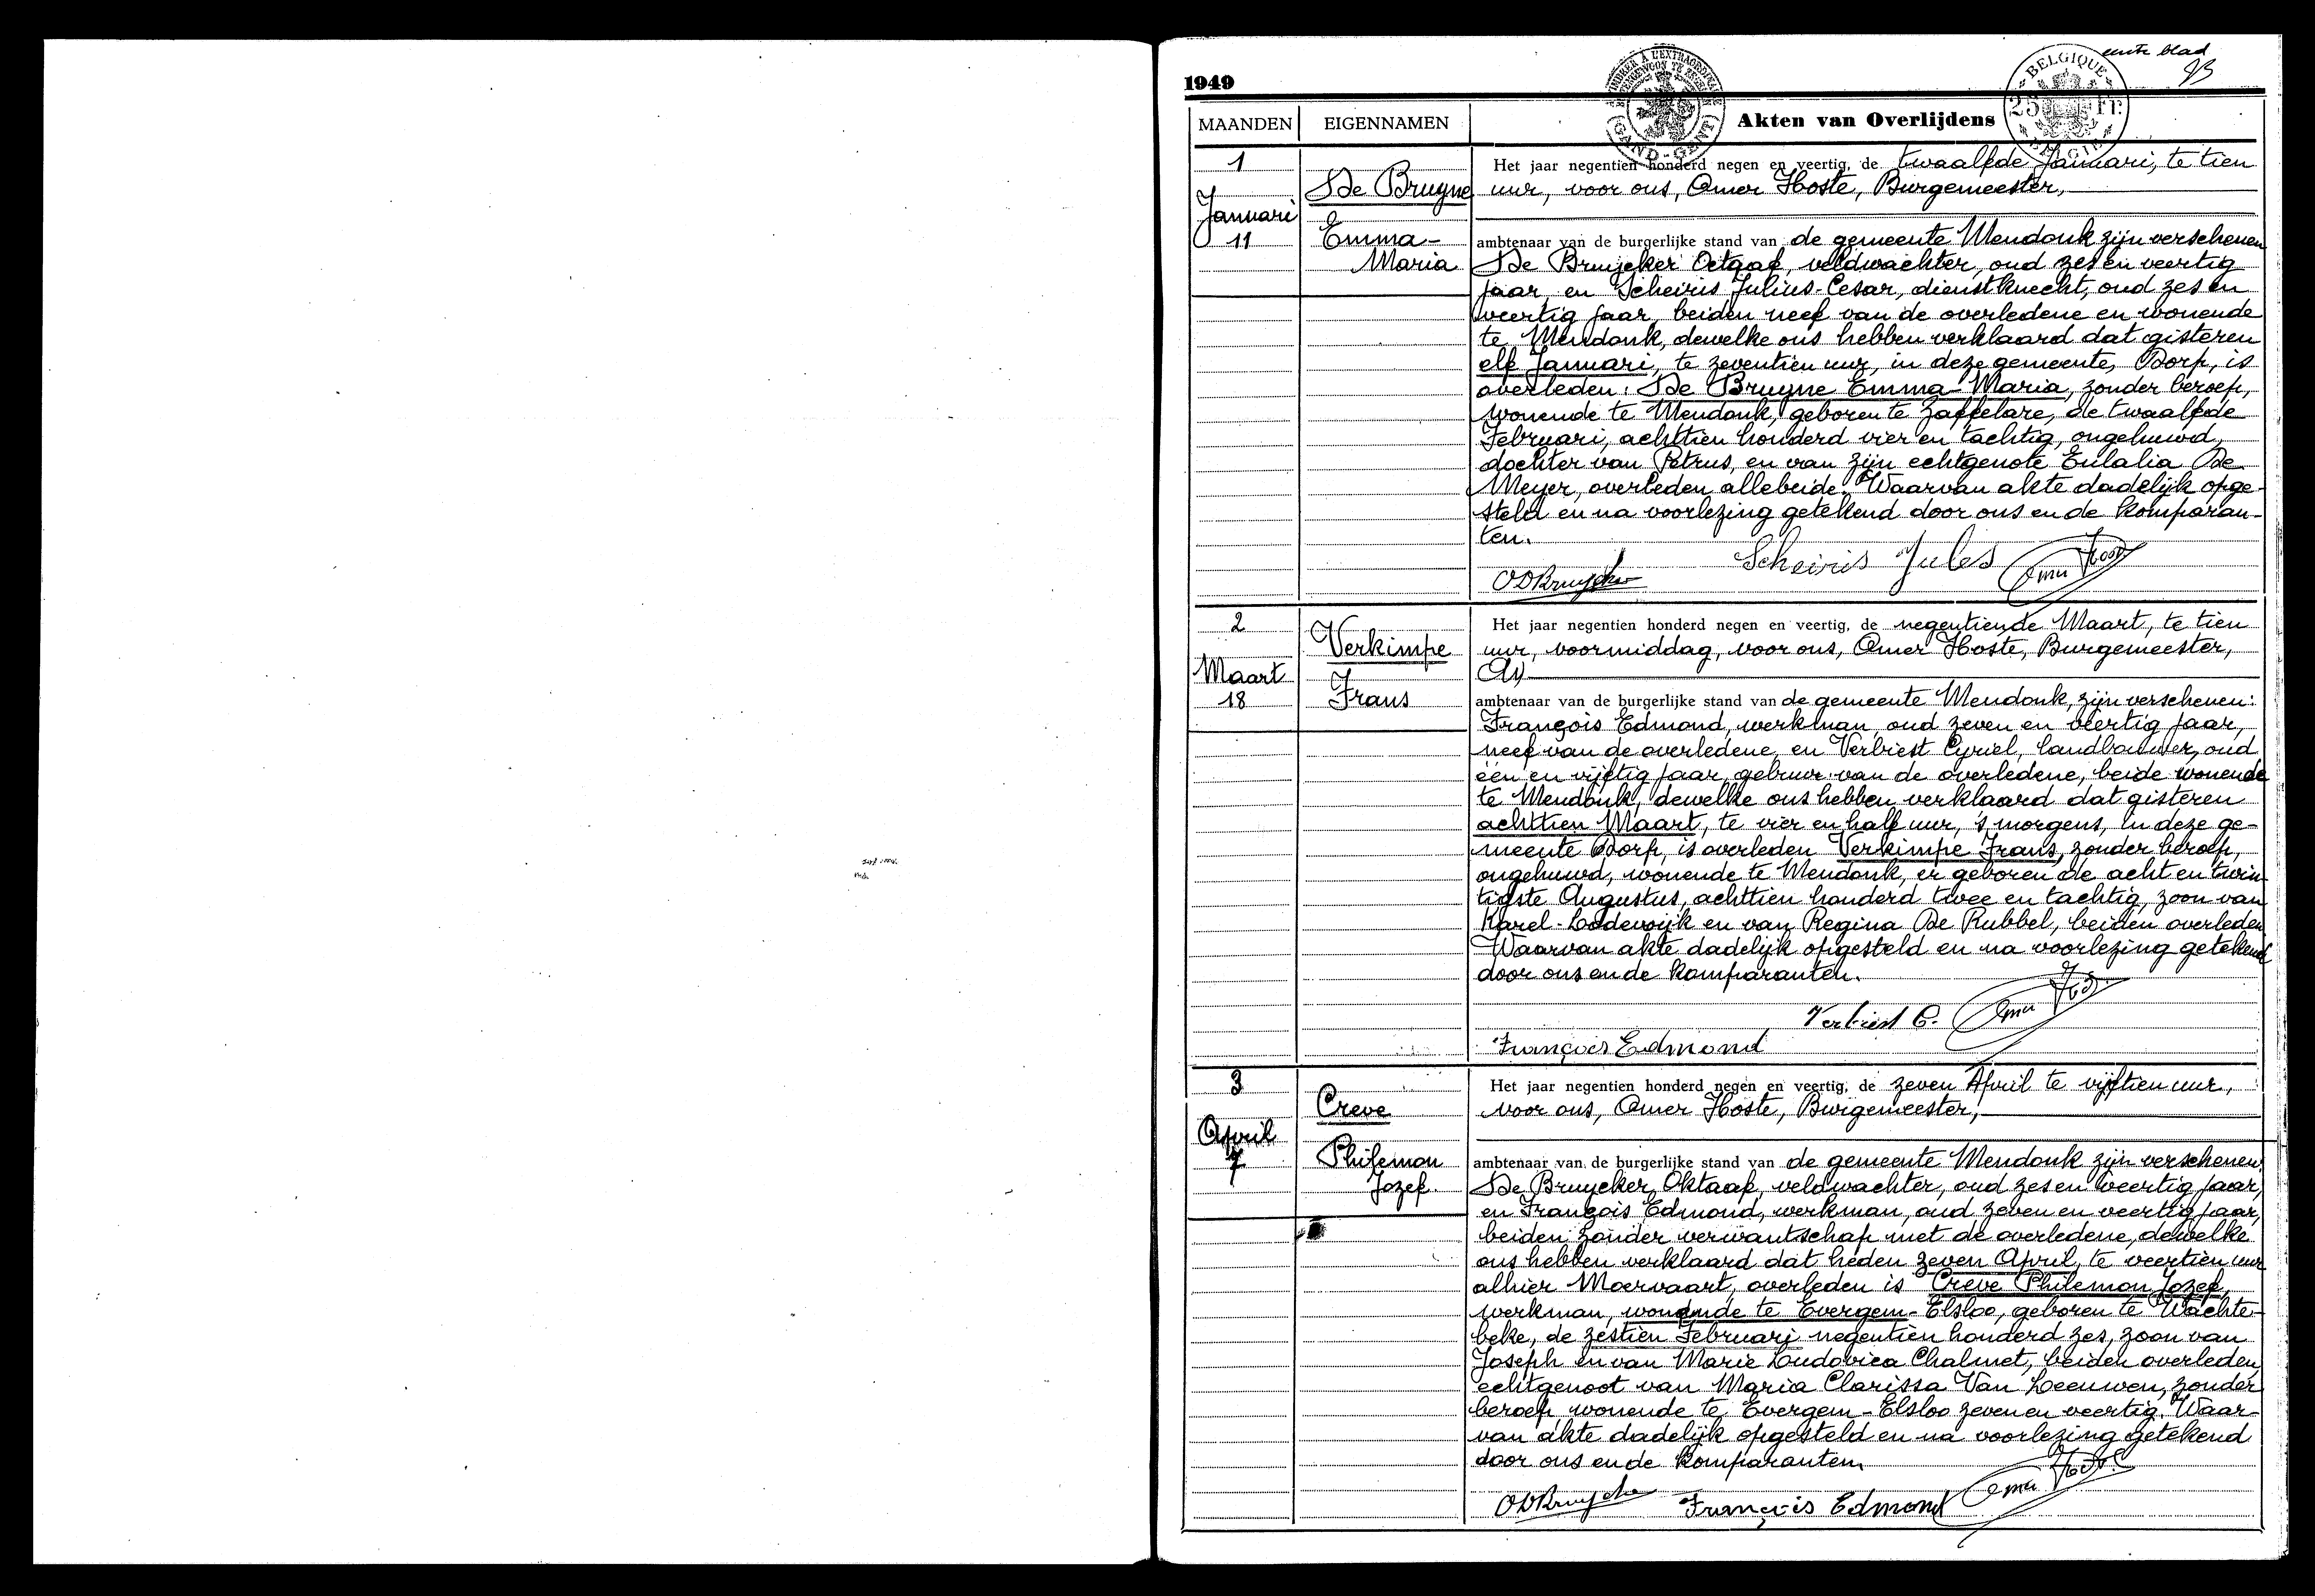 eerste blad
1949
BELGIQUE
25 Fr.
BELGIE
GAND-GENT
MAANDEN EIGENNAMEN Akten van Overlijdens
1
Januari
11
De Bruyne
Emma-
Maria
Het jaar negentien honderd negen en veertig, de twaalfde Januari, te tien
uur, voor ons, Omer Hoste, Burgemeester,
ambtenaar van de burgerlijke stand van de gemeente Mendonk zijn verschenen
De Bruycker Octaaf, veldwachter, oud zes en veertig
jaar en Scheiris Julius-Cesar, dienstknecht, oud zes en
veertig jaar, beiden neef van de overledene en wonende
te Mendonk, dewelke ons hebben verklaard dat gisteren
elf Januari, te zeventien uur, in deze gemeente, Dorp, is
overleden: De Bruyne Emma-Maria, zonder beroep,
wonende te Mendonk, geboren te Zaffelare, de twaalfde
Februari, achttien honderd vier en tachtig, ongehuwd,
dochter van Petrus, en van zijn echtgenote Eulalia De
Meyer, overleden allebeide. Waarvan akte dadelijk opge-
steld en na voorlezing getekend door ons en de komparan-
ten.
ODBruycker Scheiris Jules Omer Hoste
2
Maart
18
Verkimpe
Frans
Het jaar negentien honderd negen en veertig, de negentiende Maart, te tien
uur, voormiddag, voor ons, Omer Hoste, Burgemeester,
ambtenaar van de burgerlijke stand van de gemeente Mendonk, zijn verschenen:
François Edmond, werkman, oud zeven en veertig jaar,
neef van de overledene, en Verbiest Cyriel, landbouwer, oud
één en vijftig jaar, gebuur van de overledene, beide wonende
te Mendonk, dewelke ons hebben verklaard dat gisteren
achttien Maart, te vier en half uur, 's morgens, in deze ge-
meente Dorp, is overleden Verkimpe Frans, zonder beroep,
ongehuwd, wonende te Mendonk, er geboren de acht en twin-
tigste Augustus, achttien honderd twee en tachtig, zoon van
Karel-Lodewijk en van Regina De Rubbel, beiden overleden
Waarvan akte dadelijk opgesteld en na voorlezing getekend
door ons en de komparanten.
Verbiest C. Omer Hoste
François Edmond
3
April
7
Creve
Philemon
Jozef.
Het jaar negentien honderd negen en veertig, de zeven April te vijftien uur,
voor ons, Omer Hoste, Burgemeester,
ambtenaar van de burgerlijke stand van de gemeente Mendonk zijn verschenen
De Bruycker Oktaaf, veldwachter, oud zes en veertig jaar,
en François Edmond, werkman, oud zeven en veertig jaar,
beiden zonder verwantschap met de overledene, dewelke
ons hebben verklaard dat heden zeven April, te veertien uur
alhier Moervaart, overleden is Creve Philemon Jozef,
werkman, wonende te Evergem-Elsloo, geboren te Wachte-
beke, de zestien Februari negentien honderd zes, zoon van
Joseph en van Marie Ludovica Chalmet, beiden overleden,
echtgenoot van Maria Clarissa Van Leeuwen, zonder
beroep, wonende te Evergem-Elsloo zeven en veertig. Waar-
van akte dadelijk opgesteld en na voorlezing getekend
door ons en de komparanten.
ODBruycker François Edmond Omer Hoste